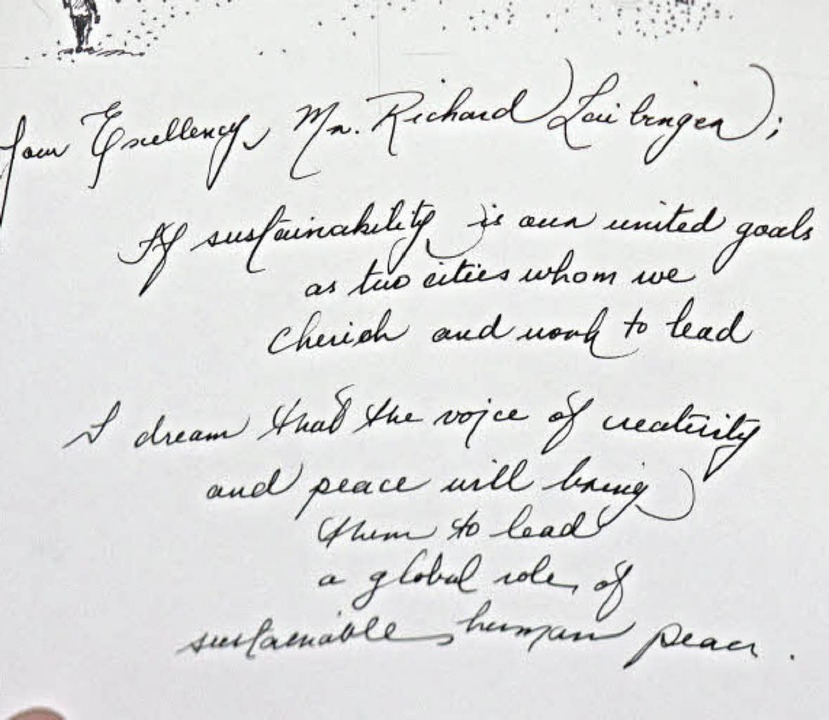 Your Exellency, Mr. Richard Leibinger;
If sustainability is our united goals
as two cities whom we
cherish and work to lead
I dream that the voice of creativity
and peace will bring
them to lead
a global role, of
sustainable human peace.